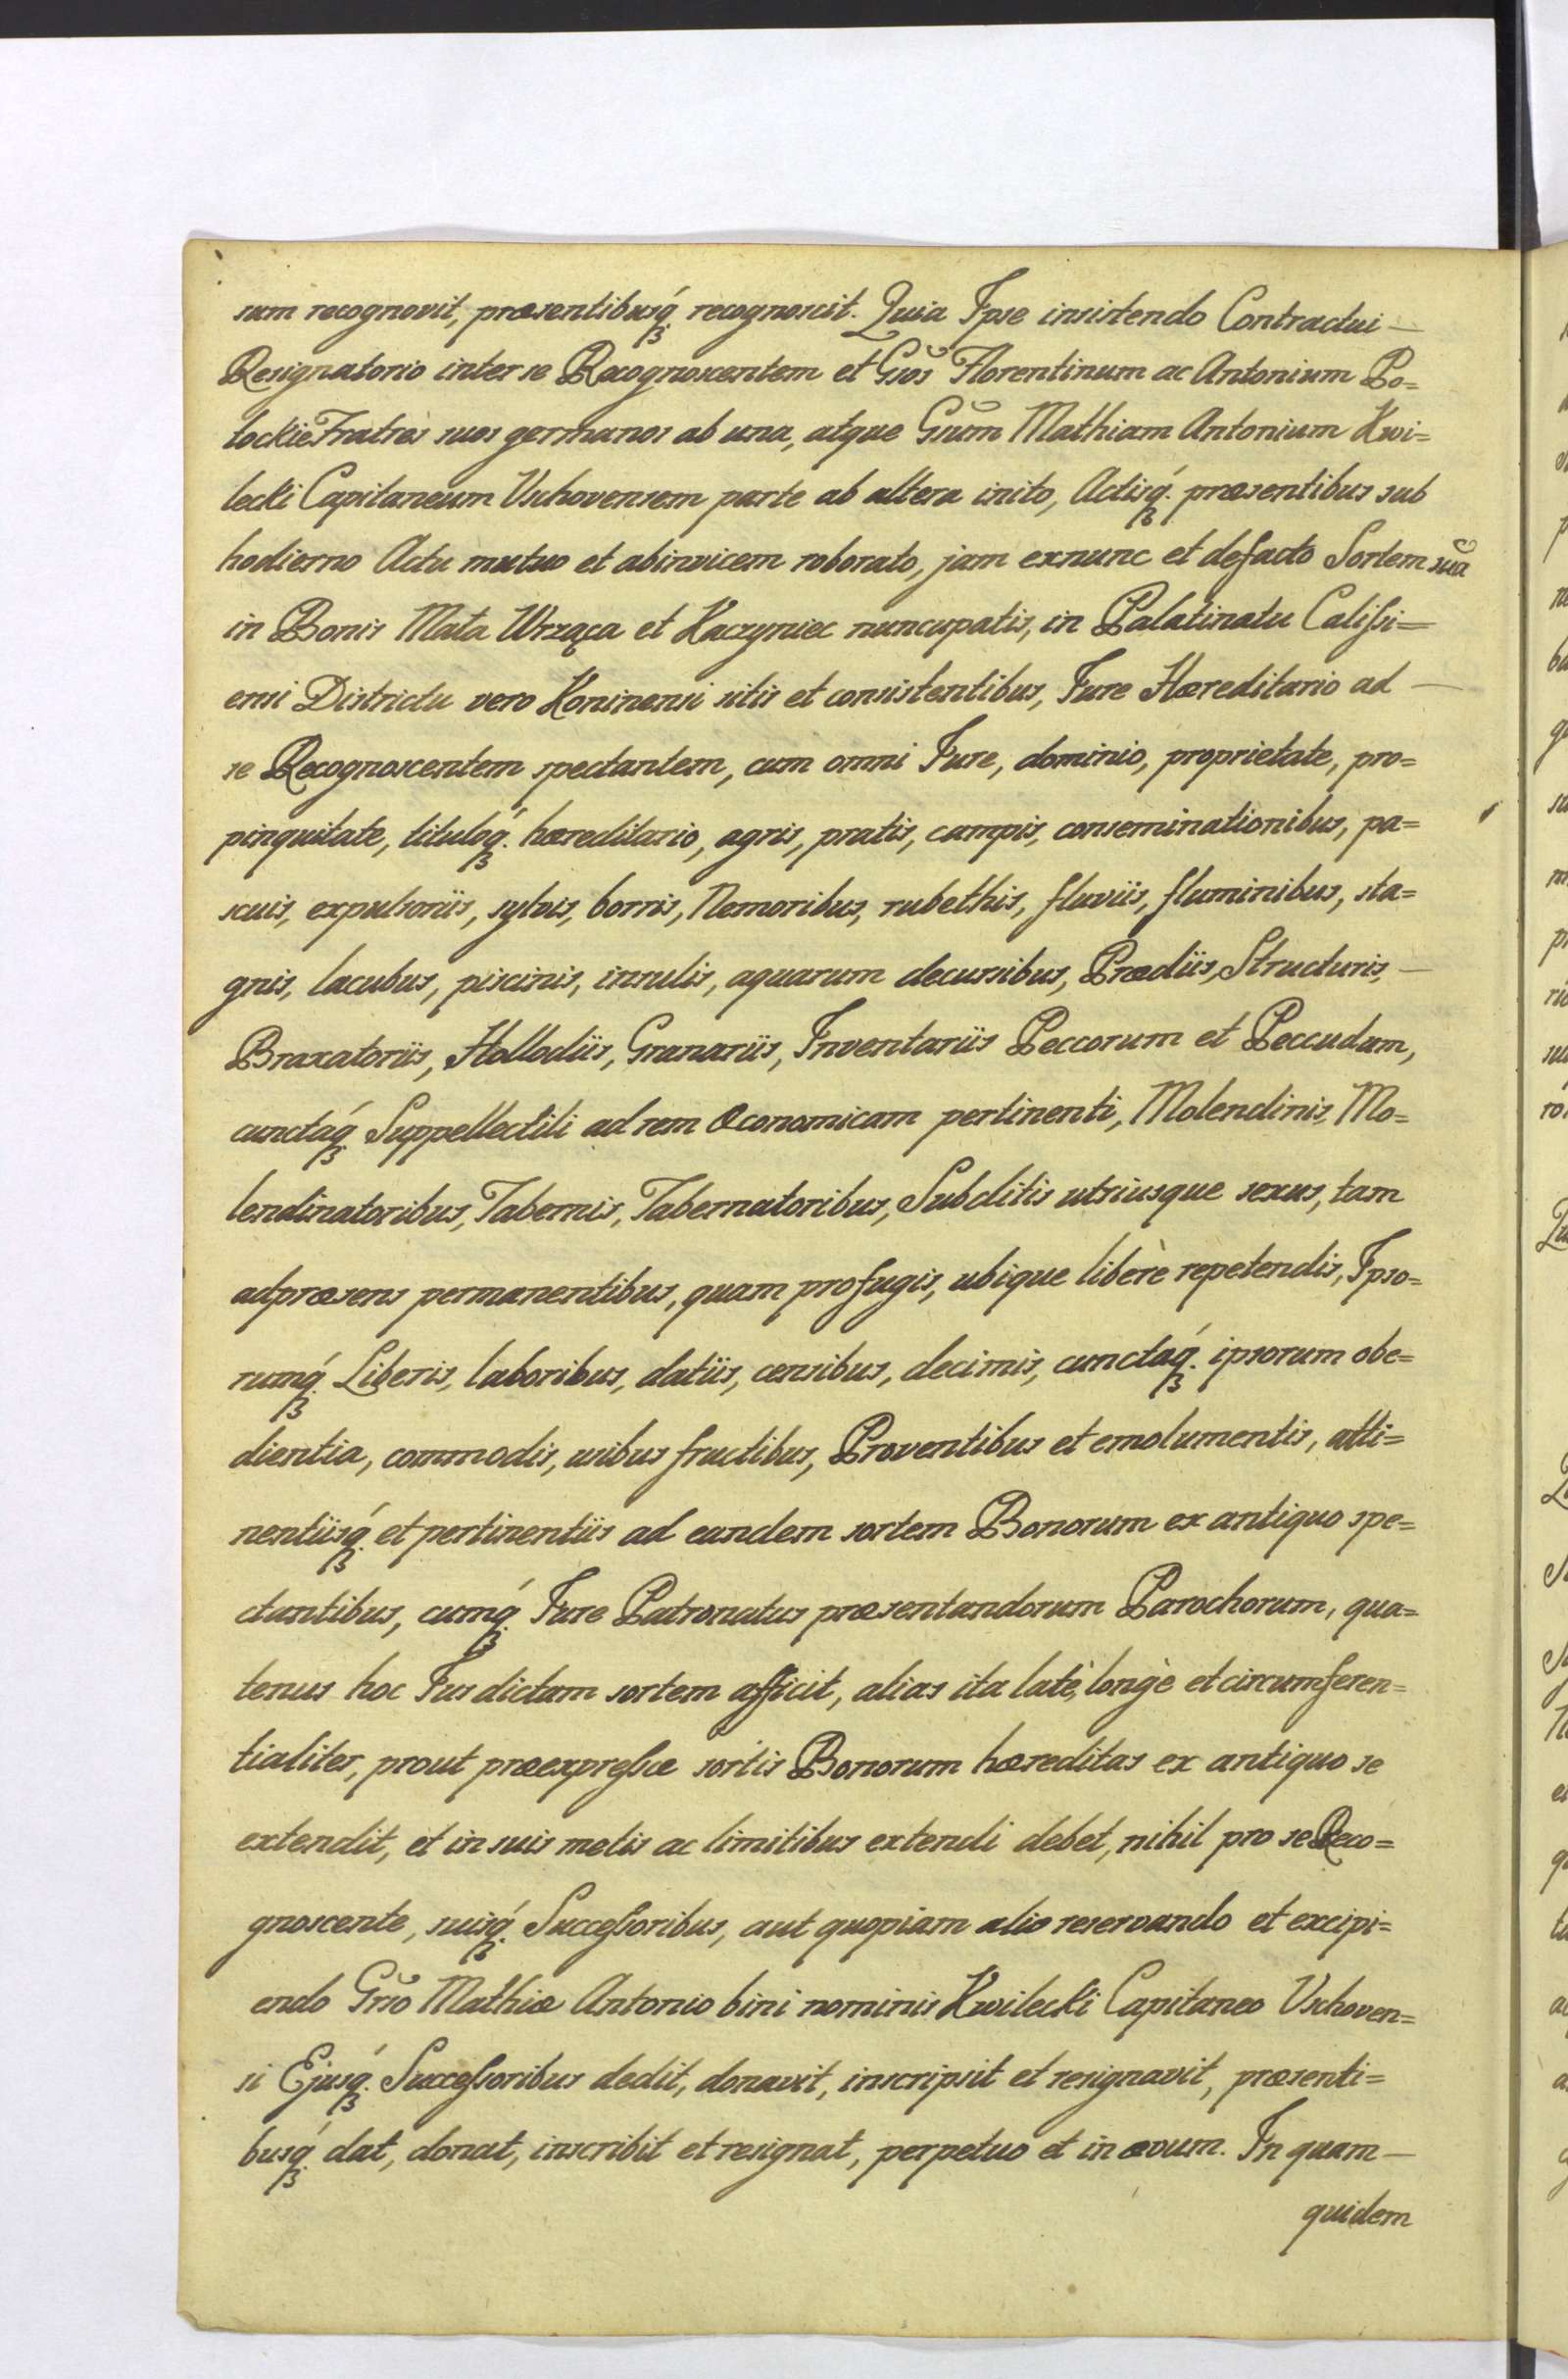 sum recognovit, præsentibusq́ꝫ recognoscit. Quia Ipse insistendo Contractui —
Resignatorio inter se Recognoscentem et Gsos Florentinum ac Antonium Po=
tockie Fratres suos germanos ab una, atque Gsum Mathiam Antonium Kwi=
lecki Capitaneum Vschovensem parte ab altera inito, Actisq́ꝫ præsentibus sub
hodierno Actu mutuo et abinvicem roborato, jam exnunc et defacto Sortem sua͠
in Bonis Mała Wrząca et Kaczyniec nuncupatis, in Palatinatu Calisſi=
ensi Districtu vero Koninensi sitis et consistentibus, Jure Hæreditario ad —
se Recognoscentem spectantem, cum omni Jure, dominio, proprietate, pro=
pinquitate, tituloq́ꝫ hæreditario, agris, pratis, campis, conseminationibus, pa=
scuis, expulsoriis, sylvis, borris, Nemoribus, rubethis, fluviis, fluminibus, sta=
gnis, lacubus, piscinis, insulis, aquarum decursibus, Prædiis, Structuris, —
Braxatoriis, Hollodiis, Granariis, Inventariis Peccorum et Peccudum,
cunctaq́ꝫ Suppellectili ad rem Œconomicam pertinenti, Molendinis, Mo=
lendinatoribus, Tabernis, Tabernatoribus, Subditis utriusque sexus, tam
adpræsens permanentibus, quam profugis, ubique liberè repetendis, Ipso=
rumq́ꝫ Liberis, laboribus, datiis, censibus, decimis, cunctaq́ꝫ ipsorum obe=
dientia, commodis, usibus fructibus, Proventibus et emolumentis, atti=
nentiisq́ꝫ et pertinentiis ad eandem sortem Bonorum ex antiquo spe=
ctantibus, cumq́ꝫ Jure Patronatus præsentandorum Parochorum, qua=
tenus hoc Jus dictam sortem afficit, alias ita latè, longè et circumferen=
tialiter, prout præexpresſæ sortis Bonorum hæreditas ex antiquo se
extendit, et in suis metis ac limitibus extendi debet, nihil pro se Reco=
gnoscente, suisq́ꝫ Succesſoribus, aut quopiam alio reservando et excipi=
endo Gso Mathiæ Antonio bini nominis Kwilecki Capitaneo Vschoven=
si Ejusq́ꝫ Succesſoribus dedit, donavit, inscripsit et resignavit, præsenti=
busq́ꝫ dat, donat, inscribit et resignat, perpetuo et in ævum. In quam —
quidem